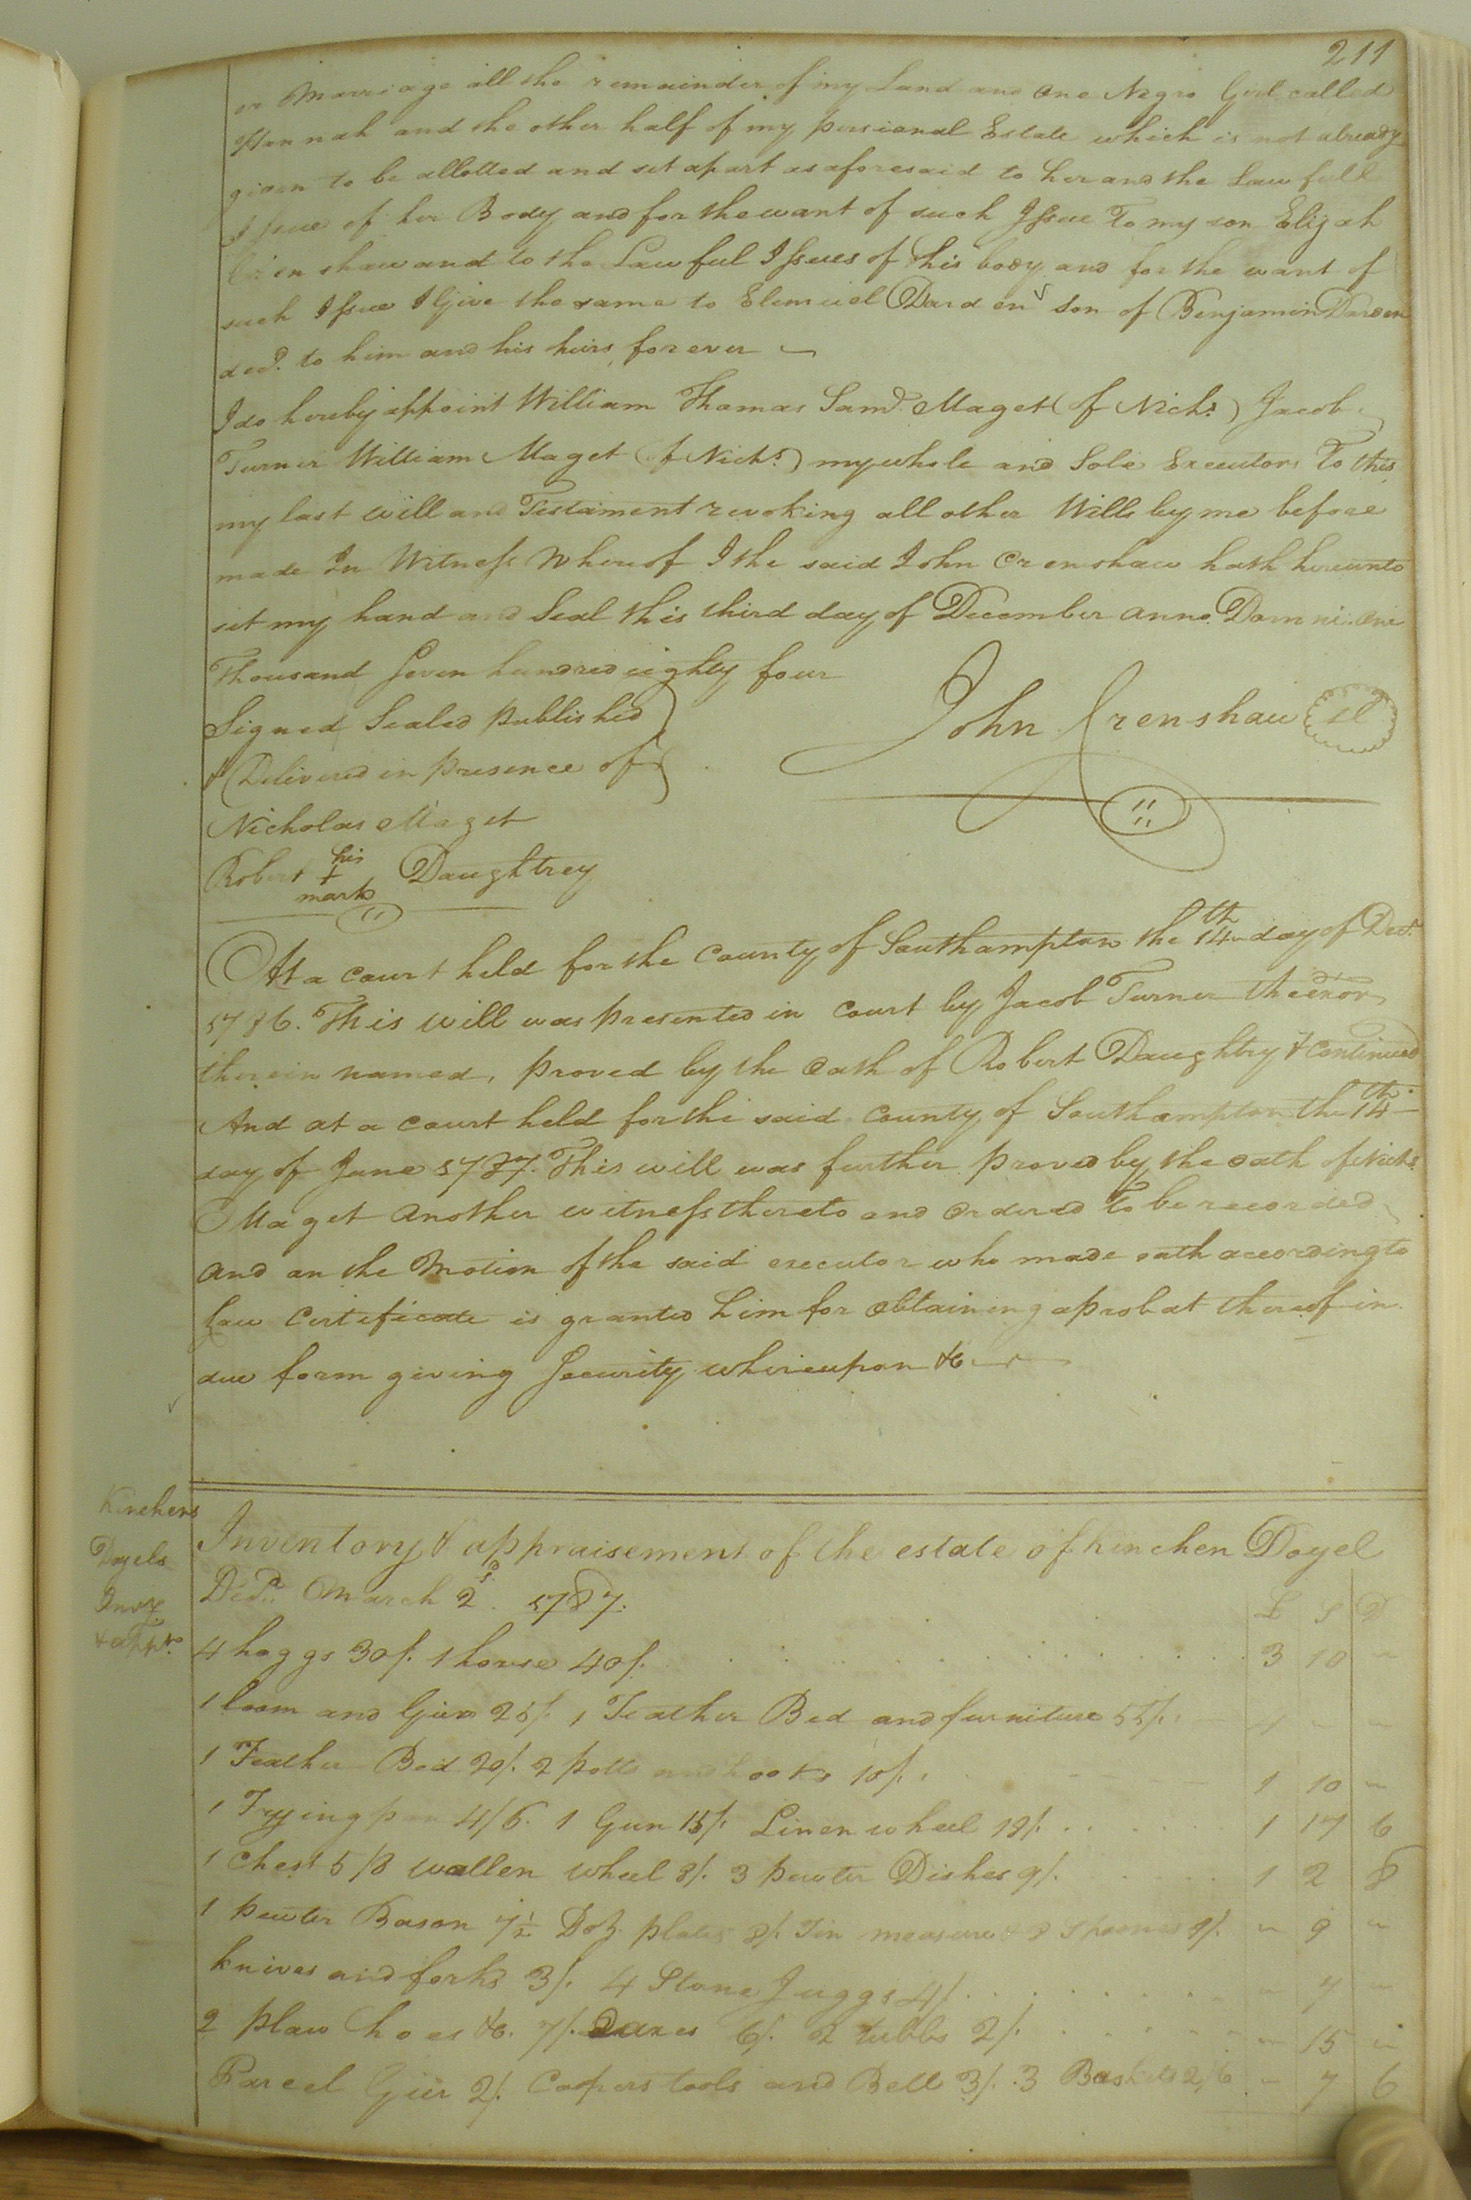 211
or Marriage all the remainder of my Land and one Negro Girl called
Hannah and the other half of my persianal Estate which is not already
given to be allotted and set apart as aforesaid to her and the Lawfull
Issue of her Body and for the want of such Issue To my son Elijah
Crenshaw and to the Lawful Issues of his body and for the want of
such Issue I Give the same to Elemuel Darden Son of Benjamin Darden
decd. to him and his heirs forever
I do hereby appoint William Thomas Saml. Maget (of Nichs.) Jacob
Turner William Maget (of Nichs.) my whole and Sole Executors To this
my last will and Testament revoking all other Wills by me before
made In Witness Whereof I the said John Crenshaw hath hereunto
set my hand and Seal this third day of December anno Domni. One
Thousand Seven hundred eighty four
Signed Sealed published
& Delivered in presence of
John Crenshaw
Nicholas Maget
Robert his + mark Daughtrey
At a court held for the County of Southampton the 14th day of Decr.
1786. This will was presented in court by Jacob Turner the exor
therein named, proved by the oath of Robert Daughtry & Continued
And at a court held for the said County of Southampton the 14th
day of June 1787. This will was further proved by the oath of Nichs.
Maget another witness thereto and ordered To be recorded
and on the Motion of the said executor who made oath according to
Law Certificate is granted him for obtaining a probat thereof in
due form giving Security whereupon &c
Kinchens
Doyels
Invy.
& appt.
Inventory & appraisement of the estate of kinchen Doyel
Decd. March 2d. 1787.
L S D
4 hoggs 30/. 1 horse 40/. 3 10 "
1 loom and Gier 25/. 1 Feather Bed and furniture 55/. 4 " "
1 Feather Bed 20/. 2 potts and hooks 10/. 1 10 "
1 Frying pan 4/6. 1 Gun 15/. Linen wheel 18/. 1 17 6
1 Chest 5/8 wollen wheel 8/. 3 pewter Dishes 9/. 1 2 8
1 pewter Bason 1/2 Doz. plates 8/. Tin measure & Spoones 1/. " 9 "
knives and forks 3/. 4 Stone Juggs 4/. " 7 "
2 plaw hoes &c. 7/. 2 axes 6/. 2 tubbs 2/. " 15 "
Parcel Gier 2/. Coopers tools and Bell 3/. 3 Baskets 2/6 " 7 6